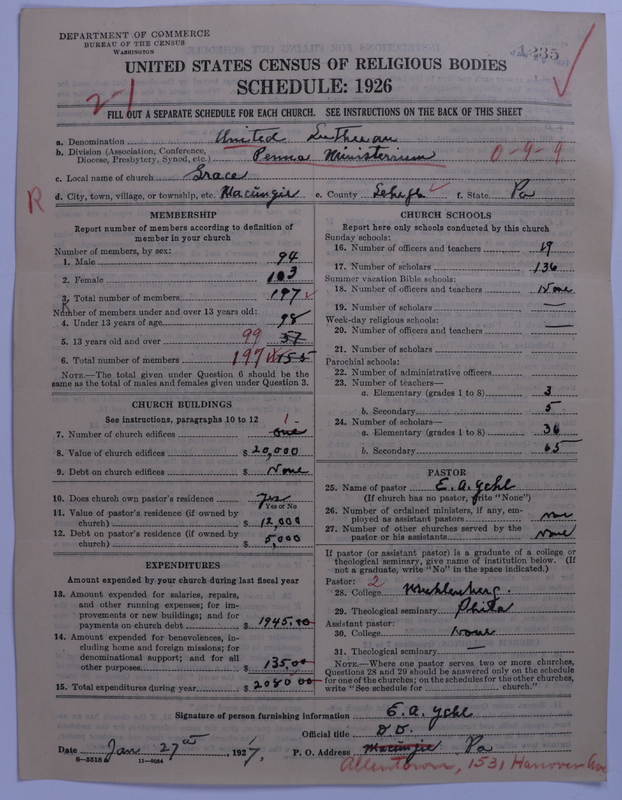 DEPARTMENT OF COMMERCE
BUREAU OF THE CENSUS
WASHINGTON
UNITED STATES CENSUS OF RELIGIOUS BODIES
SCHEDULE: 1926
2-1
FILL OUT A SEPARATE SCHEDULE FOR EACH CHURCH. SEE INSTRUCTIONS ON THE BACK OF THIS SHEET
a. Denomination United Lutheran
b. Division (Association, Conference, Diocese, Presbytery, Synod, etc.) Penna Ministerium 0-9-9
c. Local name of church Grace
R
d. City, town, village, or township, etc. Macungie e. County Lehigh f. State Pa
MEMBERSHIP
Report number of members according to definition of member in your church
Number of members, by sex:
1. Male 94
2. Female 103
3. Total number of members 197
Number of members under and over 13 years old:
4. Under 13 years of age 98
5. 13 years old and over 99 57
6. Total number of members 197 155
NOTE.—The total given under Question 6 should be the same as the total of males and females given under Question 3.
CHURCH BUILDINGS
See instructions, paragraphs 10 to 12
7. Number of church edifices 1 one
8. Value of church edifices $ 20,000
9. Debt on church edifices $ None
10. Does church own pastor's residence Yes
Yes or No
11. Value of pastor's residence (if owned by church) $ 12,000
12. Debt on pastor's residence (if owned by church) $ 5,000
EXPENDITURES
Amount expended by your church during last fiscal year
13. Amount expended for salaries, repairs, and other running expenses; for improvements or new buildings; and for payments on church debt $ 1945.00
14. Amount expended for benevolences, including home and foreign missions; for denominational support; and for all other purposes $ 135.00
15. Total expenditures during year $ 2080.00
CHURCH SCHOOLS
Report here only schools conducted by this church
Sunday schools:
16. Number of officers and teachers 19
17. Number of scholars 136
Summer vacation Bible schools:
18. Number of officers and teachers None
19. Number of scholars —
Week-day religious schools:
20. Number of officers and teachers —
21. Number of scholars
Parochial schools:
22. Number of administrative officers
23. Number of teachers—
a. Elementary (grades 1 to 8) 3
b. Secondary 5
24. Number of scholars—
a. Elementary (grades 1 to 8) 36
b. Secondary 65
PASTOR
25. Name of pastor E. A. Yehl
(If church has no pastor, write "None")
26. Number of ordained ministers, if any, employed as assistant pastors None
27. Number of other churches served by the pastor or his assistants None
If pastor (or assistant pastor) is a graduate of a college or theological seminary, give name of institution below. (If not a graduate, write "No" in the space indicated.)
Pastor: 2
28. College Muhlenberg.
29. Theological seminary Phila
Assistant pastor:
30. College None
31. Theological seminary —
NOTE.—Where one pastor serves two or more churches, Questions 28 and 29 should be answered only on the schedule for one of the churches; on the schedules for the other churches, write "See schedule for church."
Signature of person furnishing information E. A. Yehl
Official title
Date Jan 27, 1927, P. O. Address Macungie Pa
8-5518 11-9054
Allentown, 1531 Hanover Ave